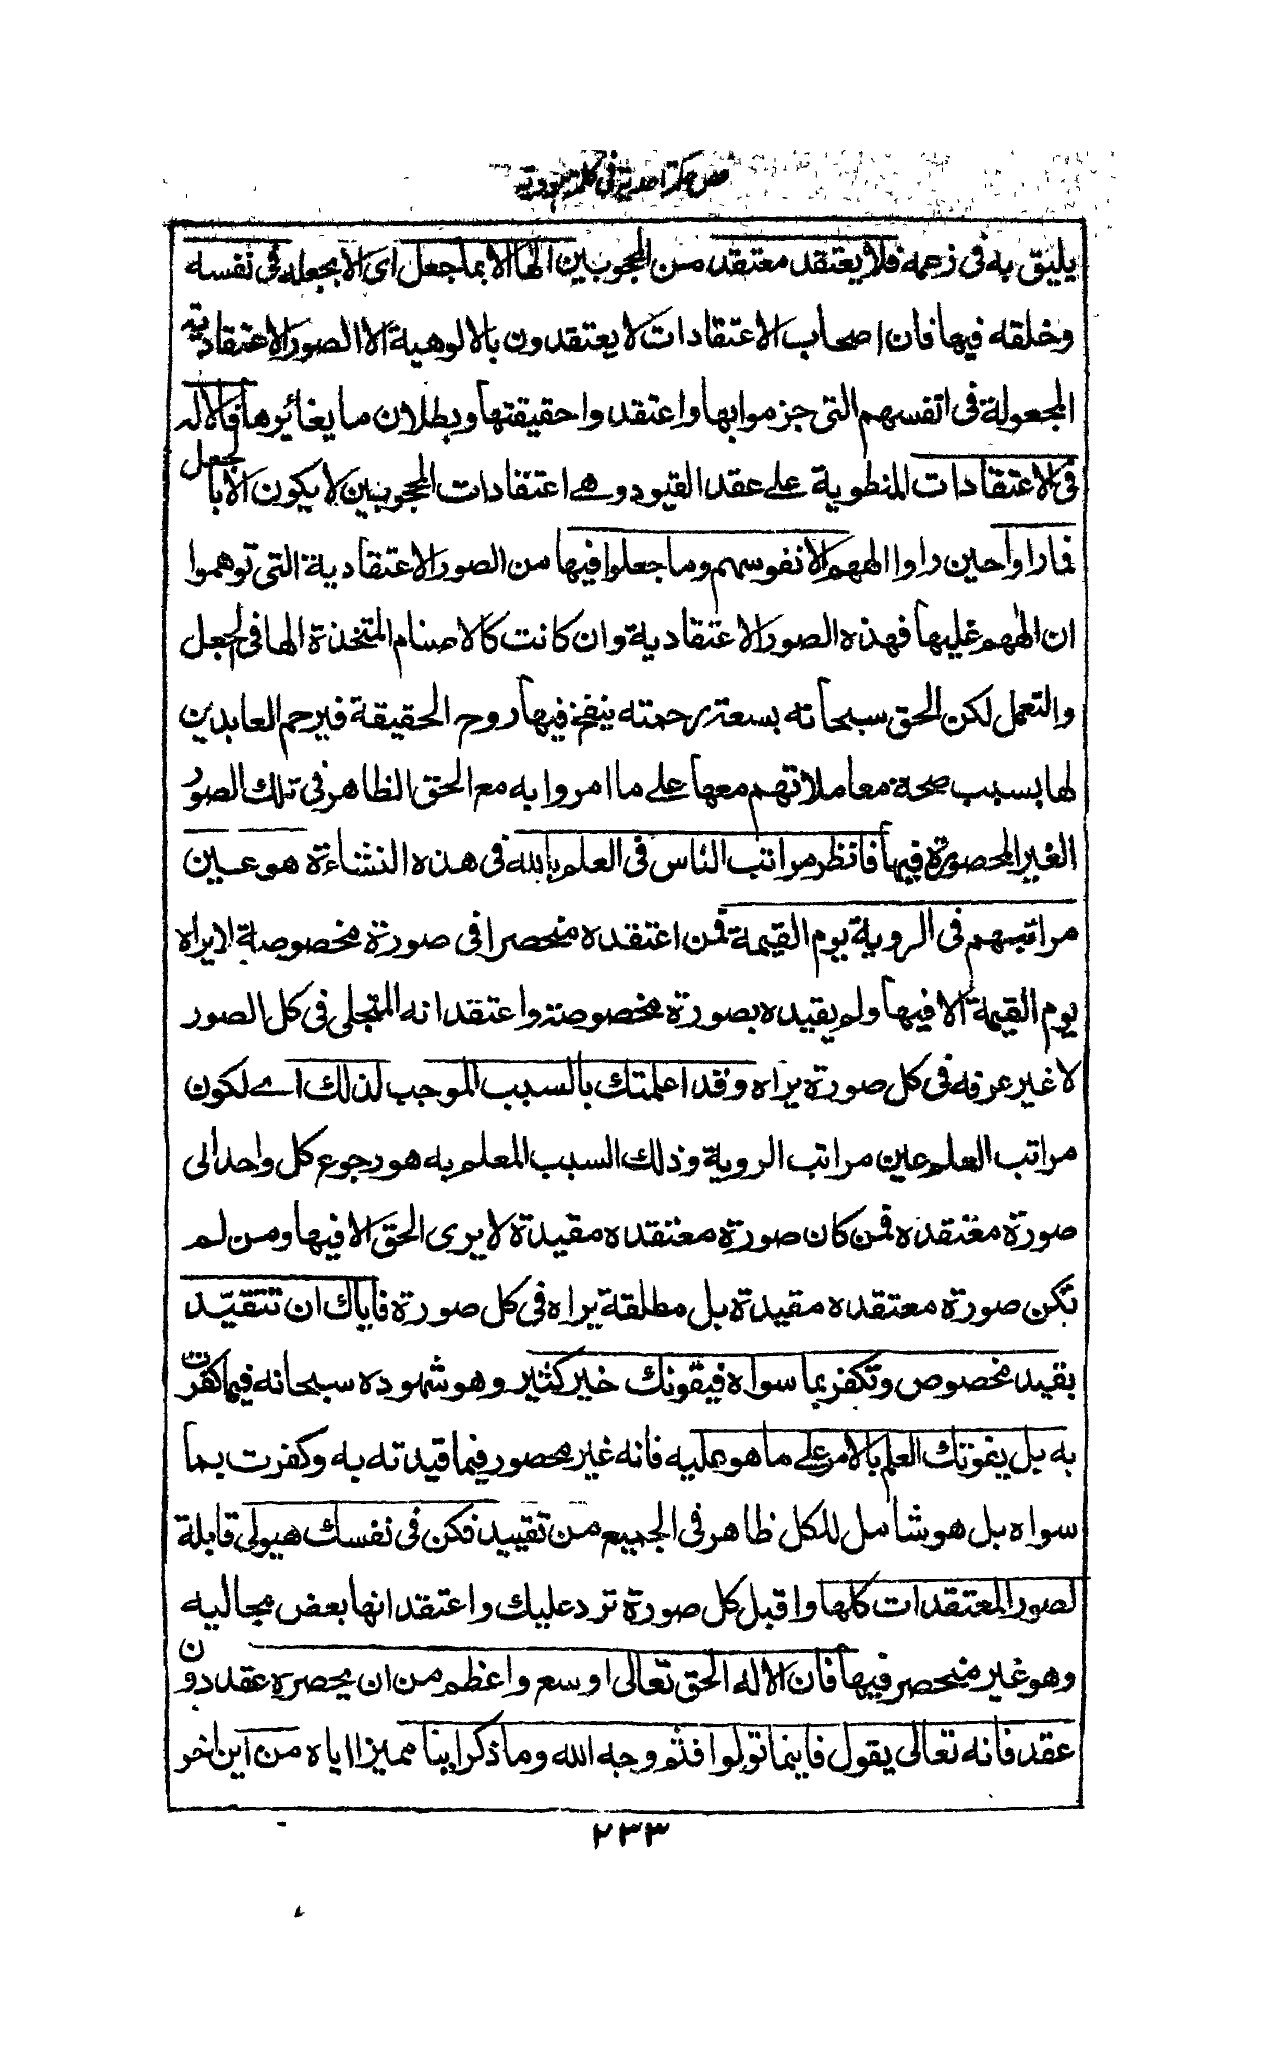 فص حكمة احدية في كلمة هودية
يليق به فى زعمه فلا يعتقد معتقد من المحجوبين الها الا بما جعل اى الا بجعله فى نفسه
وخلقه فيها فان اصحاب الاعتقادات لا يعتقدون بالالوهية الا الصور الاعتقادية
المجعولة فى انفسهم التى جزموا بها واعتقدوا حقيقتها وبطلان ما يغائرها فالاله
فى الاعتقادات المنطوية على عقد القيود وهى اعتقادات المحجوبين لا يكون الا بالجعل
فما راوا حين راوا الههم الا نفوسهم وما جعلوا فيها من الصور الاعتقادية التى توهموا
ان الههم عليها فهذه الصور الاعتقادية وان كانت كالاصنام المتخذة الها فى الجعل
والتعمل لكن الحق سبحانه بسعة رحمته ينفخ فيها روح الحقيقة فيرحم العابدين
لها بسبب صحة معاملاتهم معها على ما امروا به مع الحق الظاهر فى تلك الصور
الغير المحصورة فيها فانظر مراتب الناس فى العلم بالله فى هذه النشاءة هو عين
مراتبهم فى الروية يوم القيمة فمن اعتقده منحصرا فى صورة مخصوصة لا يراه
يوم القيمة الا فيها ولم يقيده بصورة مخصوصة واعتقد انه المتجلى فى كل الصور
لا غير عرفه فى كل صورة يراه وقد اعلمتك بالسبب الموجب لذلك اے لكون
مراتب العلم عين مراتب الروية وذلك السبب المعلم به هو رجوع كل واحد الى
صورة معتقده فمن كان صورة معتقده مقيدة لا يرى الحق الا فيها ومن لم
تكن صورة معتقده مقيدة بل مطلقة يراه فى كل صورة فاياك ان تتقيد
بقيد مخصوص وتكفر بما سواه فيفوتك خير كثير وهو شهوده سبحانه فيما كفرت
به بل يفوتك العلم بالامر على ما هو عليه فانه غير محصور فيما قيدته به وكفرت بما
سواه بل هو شامل للكل ظاهر فى الجميع من تقييد فكن فى نفسك هيولى قابلة
لصور المعتقدات كلها واقبل كل صورة ترد عليك واعتقد انها بعض مجاليه
وهو غير منحصر فيها فان الاله الحق تعالى اوسع واعظم من ان يحصره عقد دون
عقد فانه تعالى يقول فاينما تولوا فثم وجه الله وما ذكر اينا مميزا اياه من اين اخر
٢٣٣